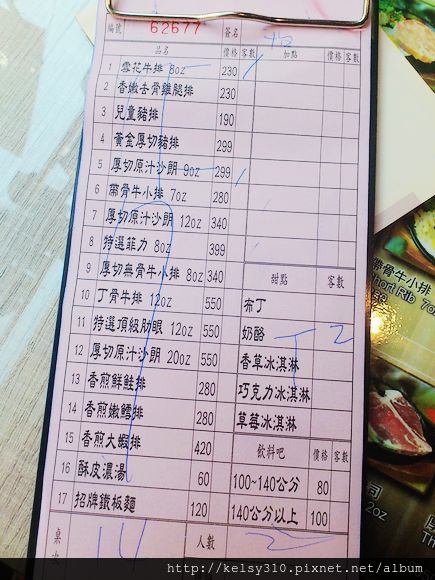 編號 62677 簽名
品名 價格 客數 加點 價格 客數
1 雪花牛排 8oz 230
2 香嫩去骨雞腿排 230
3 兒童豬排 190
4 黃金厚切豬排 299
5 厚切原汁沙朗 9oz 299
6 帶骨牛小排 7oz 280
7 厚切原汁沙朗 12oz 340
8 特選菲力 8oz 399
9 厚切無骨牛小排 8oz 340 甜點 客數
10 丁骨牛排 12oz 550 布丁
11 特選頂級肋眼 12oz 550 奶酪 2
12 厚切原汁沙朗 20oz 550 香草冰淇淋
13 香煎鮮鮭排 280 巧克力冰淇淋
14 香煎嫩鱈排 280 草莓冰淇淋
15 香煎大蝦排 420 飲料吧 價格 客數
16 酥皮濃湯 60 100~140公分 80
17 招牌鐵板麵 120 140公分以上 100
桌 14 人數 2
帶骨牛小排
Short Rib 7oz
12oz
http://kelsy310.pixnet.net/album